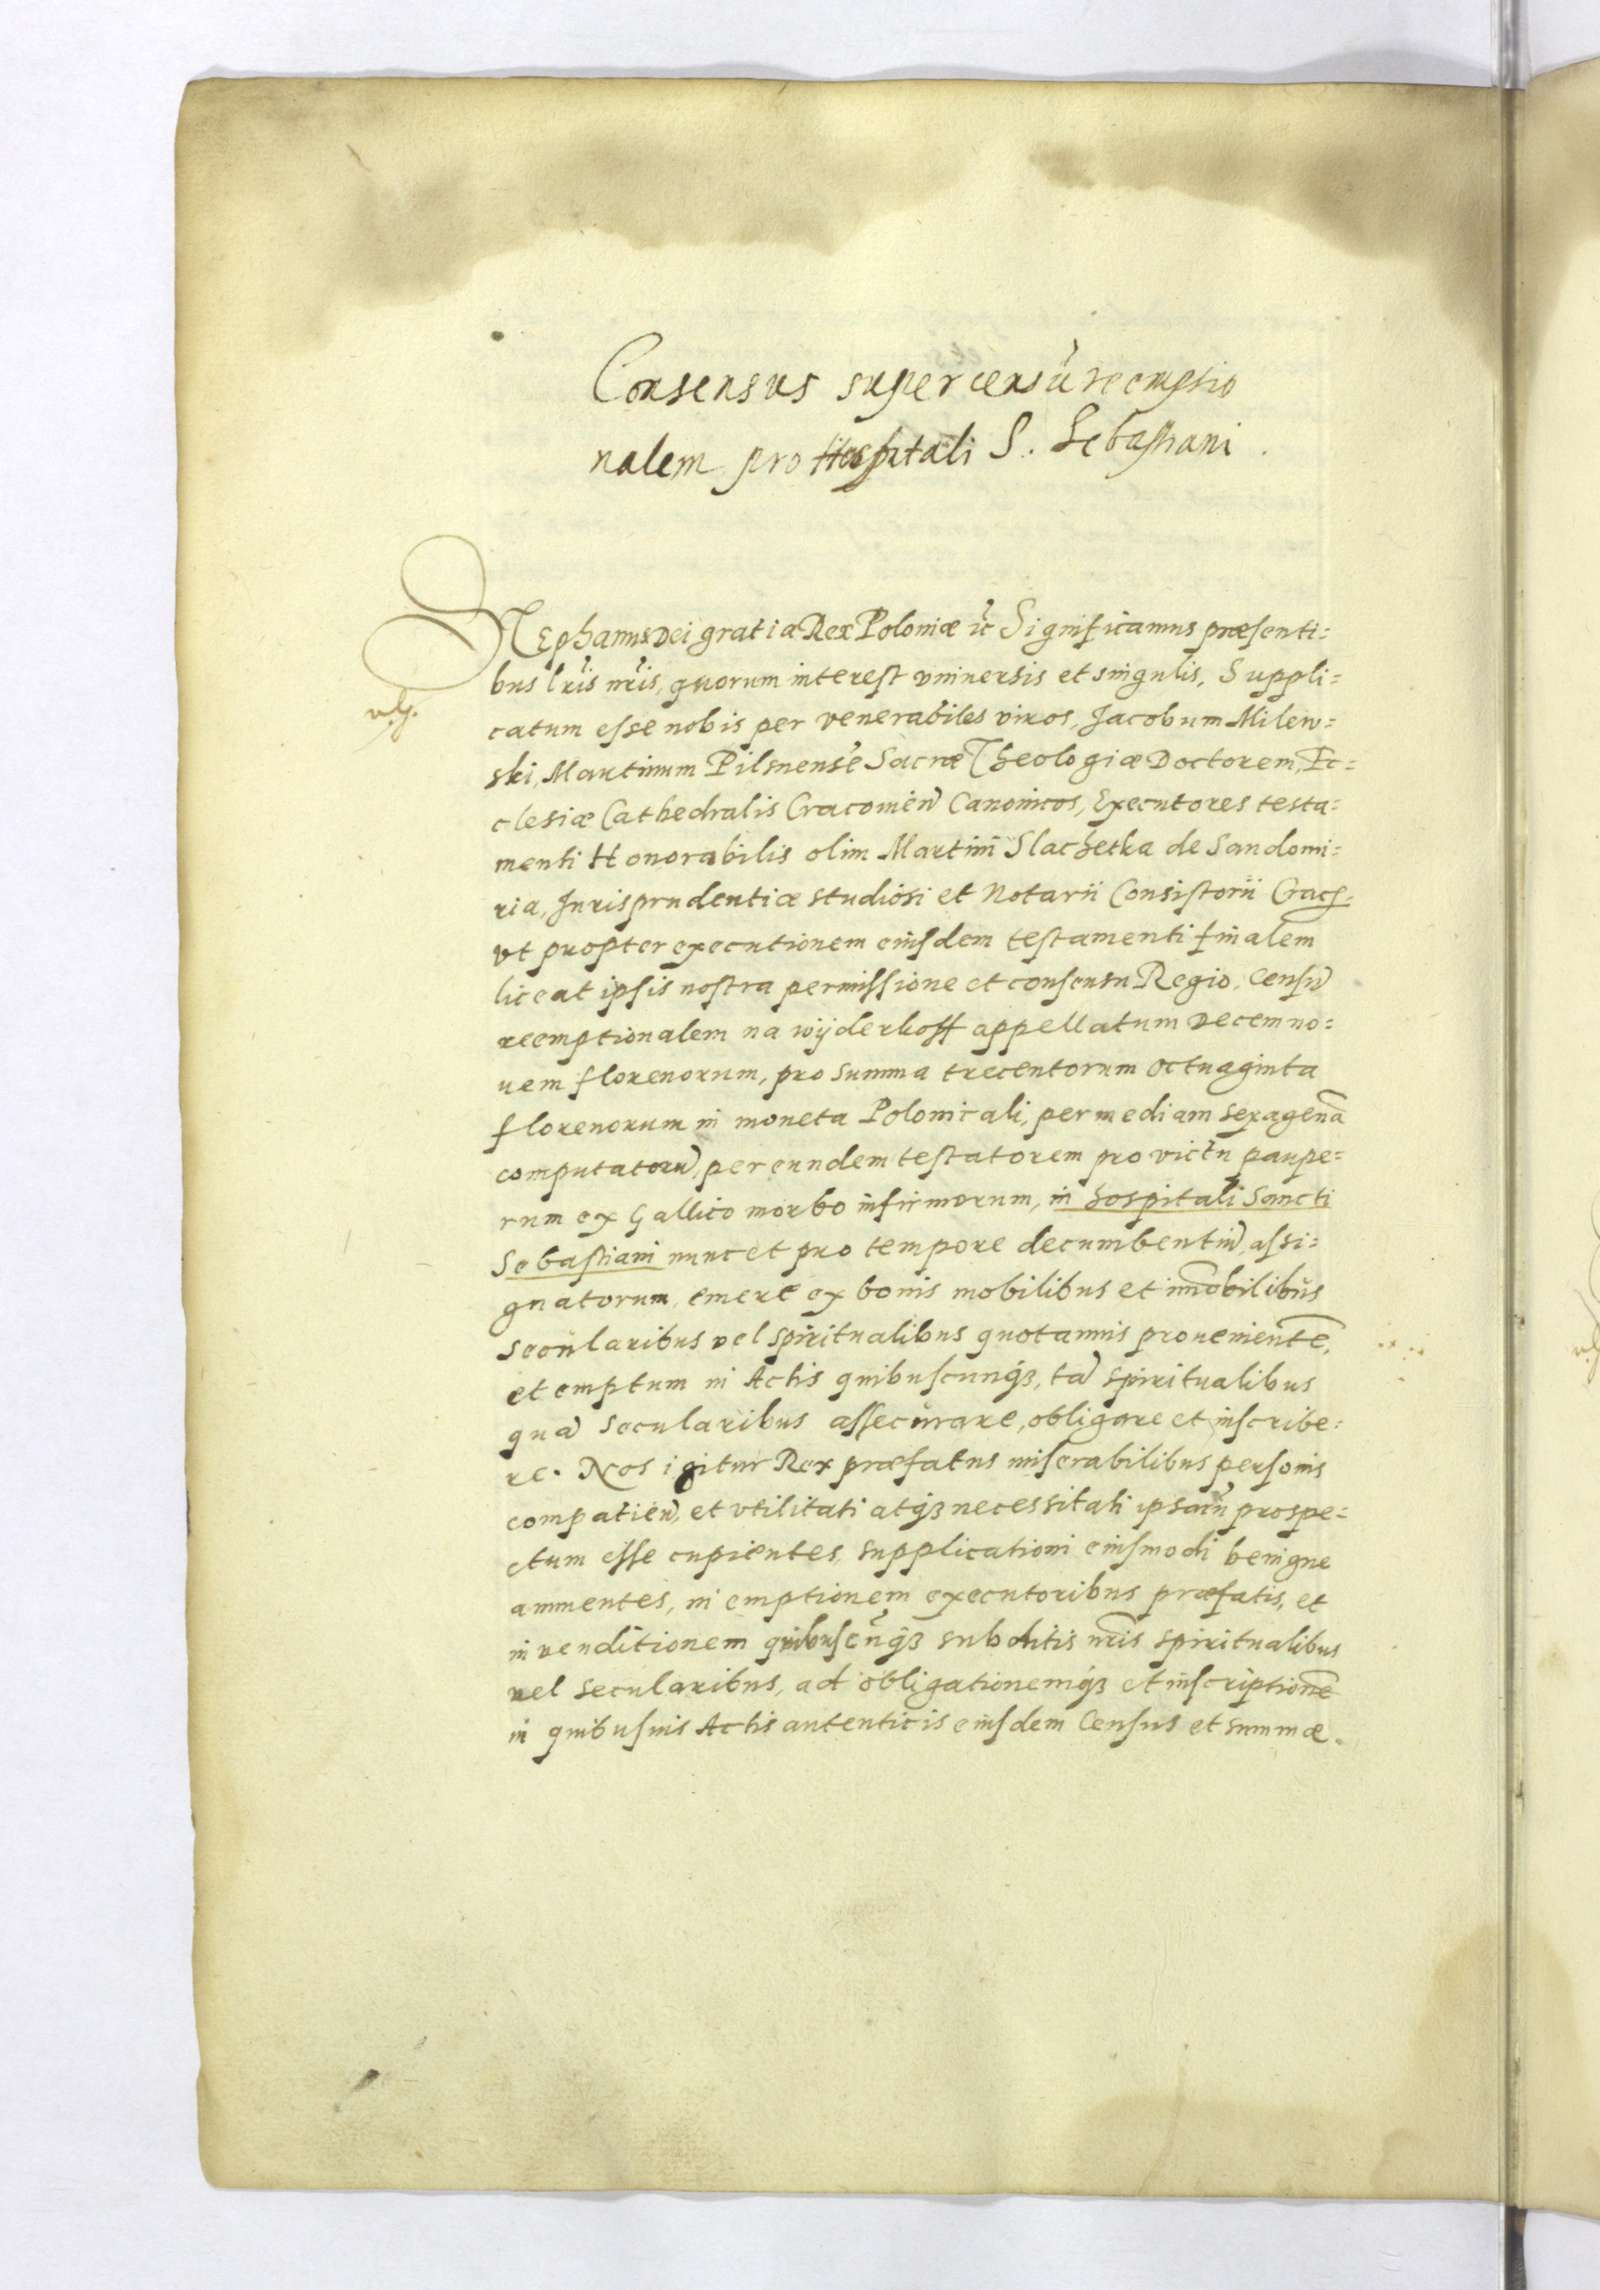 Consensus super censũ reemptio
nalem pro Hospitali S. Sebastiani.
STephanus Dei gratia Rex Poloniæ ic̃ Significamus præsenti=
bus lr̃is nr̃is, quorum interest vniuersis et singulis, Suppli=
catum esse nobis per venerabiles viros, Jacobum Milew=
ski, Martinum Pilsnensẽ Sacræ Theologiæ Doctorem, Ec=
clesiæ Cathedralis Cracouieñ Canonicos, Executores testa=
menti Honorabilis olim Martini Slachetka de Sandomi=
ria, Jurisprudentiæ studiosi et Notarii Consistorii Crac:
vt propter executionem eiusdem testamenti finalem
liceat ipsis nostra permissione et consensu Regio, Censũ
reemptionalem na wÿderkoff appellatum Decem no=
uem florenorum, pro summa trecentorum octuaginta
florenorum in moneta Polonicali, per mediam sexagenã
computatorũ, per eundem testatorem pro victu paupe=
rum ex Gallico morbo infirmorum, in hospitali Sancti
Sebastiani nunc et pro tempore decumbentiũ, assi=
gnatorum, emere ex bonis mobilibus et im̃obilibus
secularibus vel spiritualibus quotannis prouenientẽ,
et emptum in Actis quibuscunqȝ, tã spiritualibus
quã secularibus assecurare, obligare et inscribe=
re. Nos igitur Rex præfatus miserabilibus personis
compatieñ, et vtilitati atqȝ necessitati ipsarũ prospe=
ctum esse cupientes, supplicationi eiusmodi benigne
annuentes, in emptionem executoribus præfatis, et
in venditionem quibuscũqȝ subditis nr̃is spiritualibus
vel secularibus, ad obligationemqȝ et inscriptionẽ
in quibusuis Actis autenticis eiusdem Census et summæ.